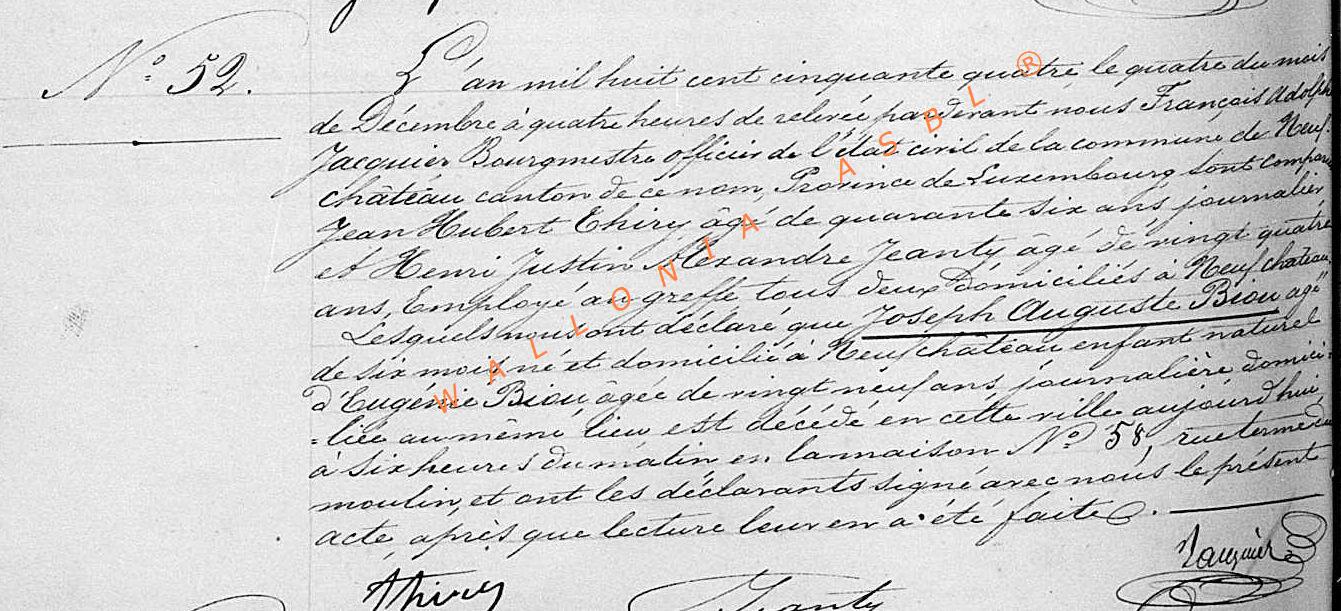 N° 52.
L'an mil huit cent cinquante quatre le quatre du mois
de Décembre à quatre heures de relevée pardevant nous François Adolph
Jacquier Bourgmestre officier de l'état civil de la commune de Neuf-
château canton de ce nom, Province de Luxembourg sont compar
Jean Hubert Thiry âgé de quarante six ans journalier
et Henri Justin Alexandre Jeanty âgé de vingt quatre
ans, Employé au greffe tous deux Domiciliés à Neufchâteau
Lesquels nous ont déclaré que Joseph Auguste Biou agé
de six mois né et domicilié à Neufchâteau enfant naturel
d'Eugénie Biou âgée de vingt neuf ans, journalière domici-
-liée au même lieu est décédé en cette ville aujourd'hui
à six heures du matin en la maison N° 58, rue terme du
moulin, et ont les déclarants signé avec nous le présent
acte, après que lecture leur en a été faite.
Jacquier
Thiry
Jeanty
WALLONIA ASBL ®